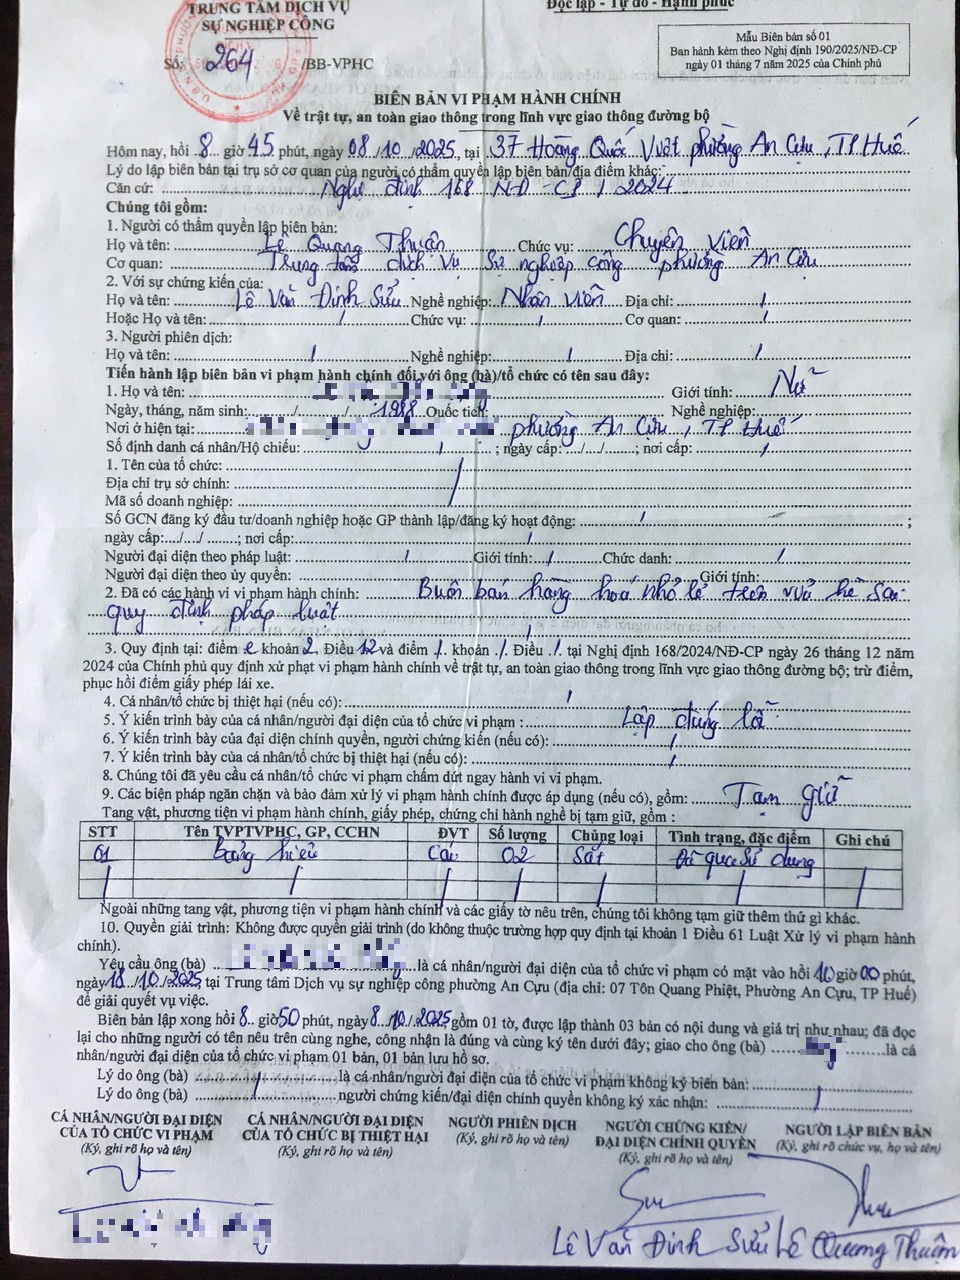 TRUNG TÂM DỊCH VỤ
SỰ NGHIỆP CÔNG
Độc lập - Tự do - Hạnh phúc
Số: 264 /BB-VPHC
Mẫu Biên bản số 01
Ban hành kèm theo Nghị định 190/2025/NĐ-CP
ngày 01 tháng 7 năm 2025 của Chính phủ
BIÊN BẢN VI PHẠM HÀNH CHÍNH
Về trật tự, an toàn giao thông trong lĩnh vực giao thông đường bộ
Hôm nay, hồi 8 giờ 45 phút, ngày 08/10/2025, tại 37 Hoàng Quốc Việt phường An Cựu, TP Huế
Lý do lập biên bản tại trụ sở cơ quan của người có thẩm quyền lập biên bản/địa điểm khác:
Căn cứ: Nghị định 168 NĐ-CP / 2024
Chúng tôi gồm:
1. Người có thẩm quyền lập biên bản:
Họ và tên: Lê Quang Thuận Chức vụ: Chuyên viên
Cơ quan: Trung tâm dịch vụ Sự nghiệp công phường An Cựu
2. Với sự chứng kiến của:
Họ và tên: Lê Văn Đình Sửu Nghề nghiệp: Nhân viên Địa chỉ: /
Hoặc Họ và tên: / Chức vụ: / Cơ quan: /
3. Người phiên dịch:
Họ và tên: / Nghề nghiệp: / Địa chỉ: /
Tiến hành lập biên bản vi phạm hành chính đối với ông (bà)/tổ chức có tên sau đây:
1. Họ và tên: Giới tính: Nữ
Ngày, tháng, năm sinh: / / 1988 Quốc tịch: Nghề nghiệp:
Nơi ở hiện tại: phường An Cựu, TP Huế
Số định danh cá nhân/Hộ chiếu: / ; ngày cấp:..../..../......; nơi cấp: /
1. Tên của tổ chức:
Địa chỉ trụ sở chính: /
Mã số doanh nghiệp:
Số GCN đăng ký đầu tư/doanh nghiệp hoặc GP thành lập/đăng ký hoạt động: / ;
ngày cấp:..../..../ .......; nơi cấp: /
Người đại diện theo pháp luật: / Giới tính: / Chức danh: /
Người đại diện theo ủy quyền: Giới tính:
2. Đã có các hành vi vi phạm hành chính: Buôn bán hàng hoá nhỏ lẻ trên vỉa hè sai
quy định pháp luật
/
3. Quy định tại: điểm e khoản 2 Điều 12 và điểm / khoản / Điều / tại Nghị định 168/2024/NĐ-CP ngày 26 tháng 12 năm
2024 của Chính phủ quy định xử phạt vi phạm hành chính về trật tự, an toàn giao thông trong lĩnh vực giao thông đường bộ; trừ điểm,
phục hồi điểm giấy phép lái xe.
4. Cá nhân/tổ chức bị thiệt hại (nếu có): /
5. Ý kiến trình bày của cá nhân/người đại diện của tổ chức vi phạm : Lập đúng lỗi
6. Ý kiến trình bày của đại diện chính quyền, người chứng kiến (nếu có): /
7. Ý kiến trình bày của cá nhân/tổ chức bị thiệt hại (nếu có): /
8. Chúng tôi đã yêu cầu cá nhân/tổ chức vi phạm chấm dứt ngay hành vi vi phạm.
9. Các biện pháp ngăn chặn và bảo đảm xử lý vi phạm hành chính được áp dụng (nếu có), gồm: Tạm giữ
Tang vật, phương tiện vi phạm hành chính, giấy phép, chứng chỉ hành nghề bị tạm giữ, gồm :
STT Tên TVPTVPHC, GP, CCHN ĐVT Số lượng Chủng loại Tình trạng, đặc điểm Ghi chú
01 Bảng hiệu Cái 02 Sắt Đã qua Sử dụng
/ / / / / / /
Ngoài những tang vật, phương tiện vi phạm hành chính và các giấy tờ nêu trên, chúng tôi không tạm giữ thêm thứ gì khác.
10. Quyền giải trình: Không được quyền giải trình (do không thuộc trường hợp quy định tại khoản 1 Điều 61 Luật Xử lý vi phạm hành
chính).
Yêu cầu ông (bà) là cá nhân/người đại diện của tổ chức vi phạm có mặt vào hồi 10 giờ 00 phút,
ngày /10/2025 tại Trung tâm Dịch vụ sự nghiệp công phường An Cựu (địa chỉ: 07 Tôn Quang Phiệt, Phường An Cựu, TP Huế)
để giải quyết vụ việc.
Biên bản lập xong hồi 8 giờ 50 phút, ngày 8/10/2025 gồm 01 tờ, được lập thành 03 bản có nội dung và giá trị như nhau; đã đọc
lại cho những người có tên nêu trên cùng nghe, công nhận là đúng và cùng ký tên dưới đây; giao cho ông (bà) là cá
nhân/người đại diện của tổ chức vi phạm 01 bản, 01 bản lưu hồ sơ.
Lý do ông (bà) / là cá nhân/người đại diện của tổ chức vi phạm không ký biên bản:
Lý do ông (bà) người chứng kiến/đại diện chính quyền không ký xác nhận: /
CÁ NHÂN/NGƯỜI ĐẠI DIỆN
CỦA TỔ CHỨC VI PHẠM
(Ký, ghi rõ họ và tên)
CÁ NHÂN/NGƯỜI ĐẠI DIỆN
CỦA TỔ CHỨC BỊ THIỆT HẠI
(Ký, ghi rõ họ và tên)
NGƯỜI PHIÊN DỊCH
(Ký, ghi rõ họ và tên)
NGƯỜI CHỨNG KIẾN/
ĐẠI DIỆN CHÍNH QUYỀN
(Ký, ghi rõ họ và tên)
NGƯỜI LẬP BIÊN BẢN
(Ký, ghi rõ chức vụ, họ và tên)
Lê Văn Đình Sửu
Lê Quang Thuận